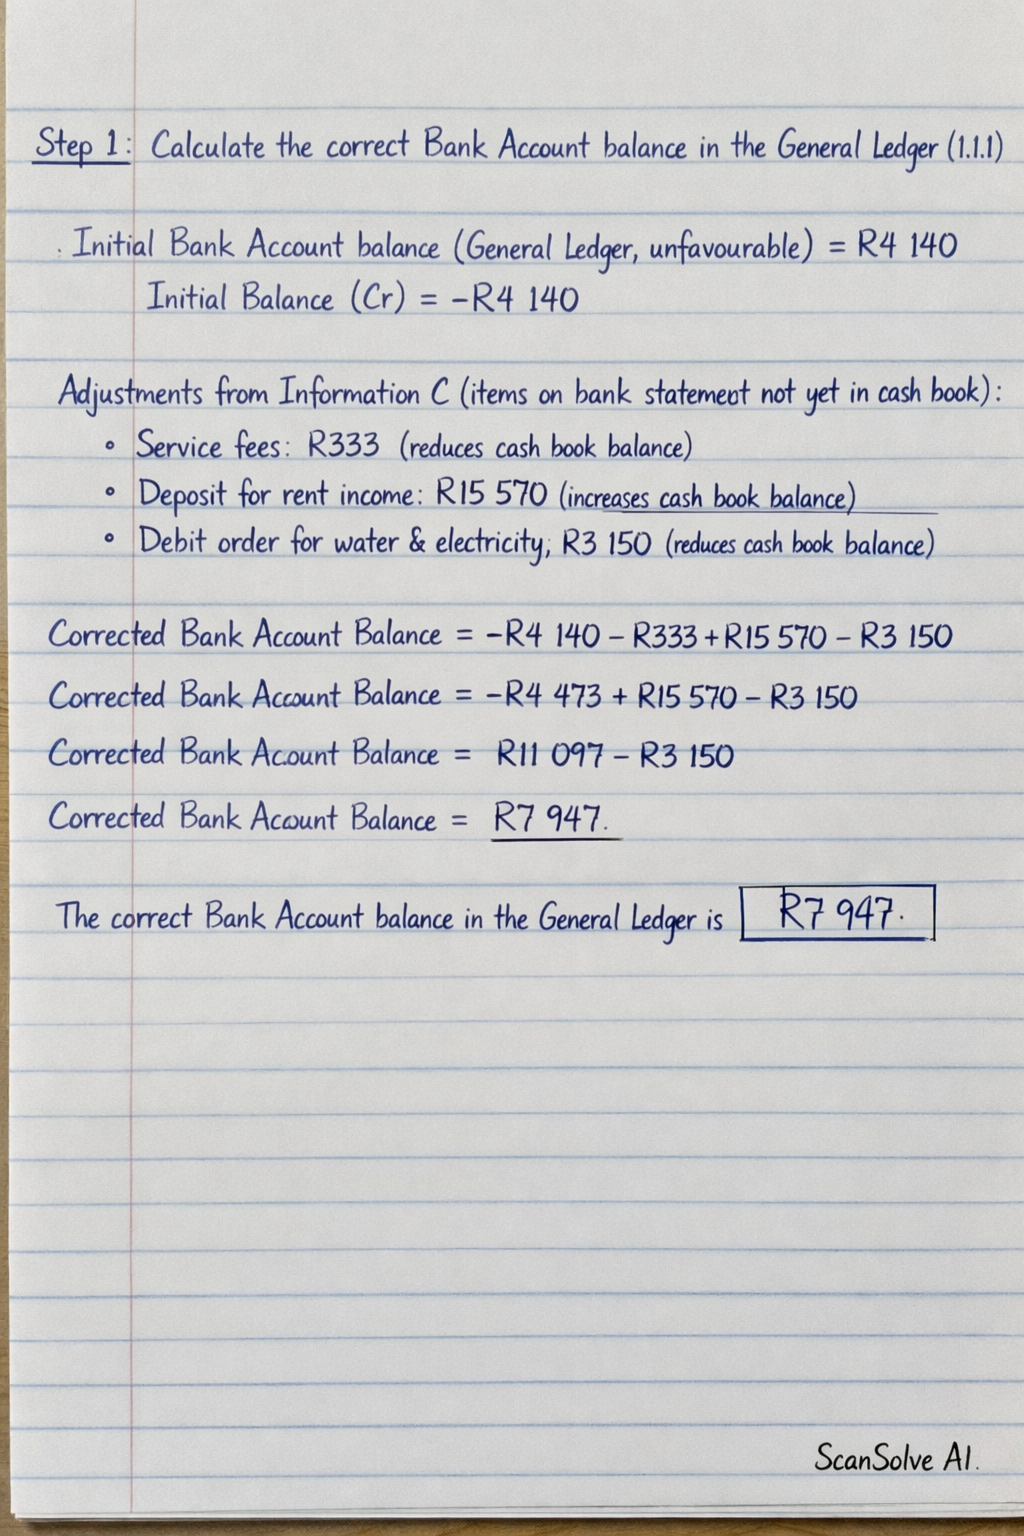 Step 1: Calculate the correct Bank Account balance in the General Ledger (1.1.1)
. Initial Bank Account balance (General Ledger, unfavourable) = R4 140
Initial Balance (Cr) = -R4 140
Adjustments from Information C (items on bank statement not yet in cash book):
• Service fees: R333 (reduces cash book balance)
• Deposit for rent income: R15 570 (increases cash book balance)
• Debit order for water & electricity; R3 150 (reduces cash book balance)
Corrected Bank Account Balance = -R4 140 - R333 + R15 570 - R3 150
Corrected Bank Account Balance = -R4 473 + R15 570 - R3 150
Corrected Bank Account Balance = R11 097 - R3 150
Corrected Bank Account Balance = R7 947.
The correct Bank Account balance in the General Ledger is R7 947.
ScanSolve AI.